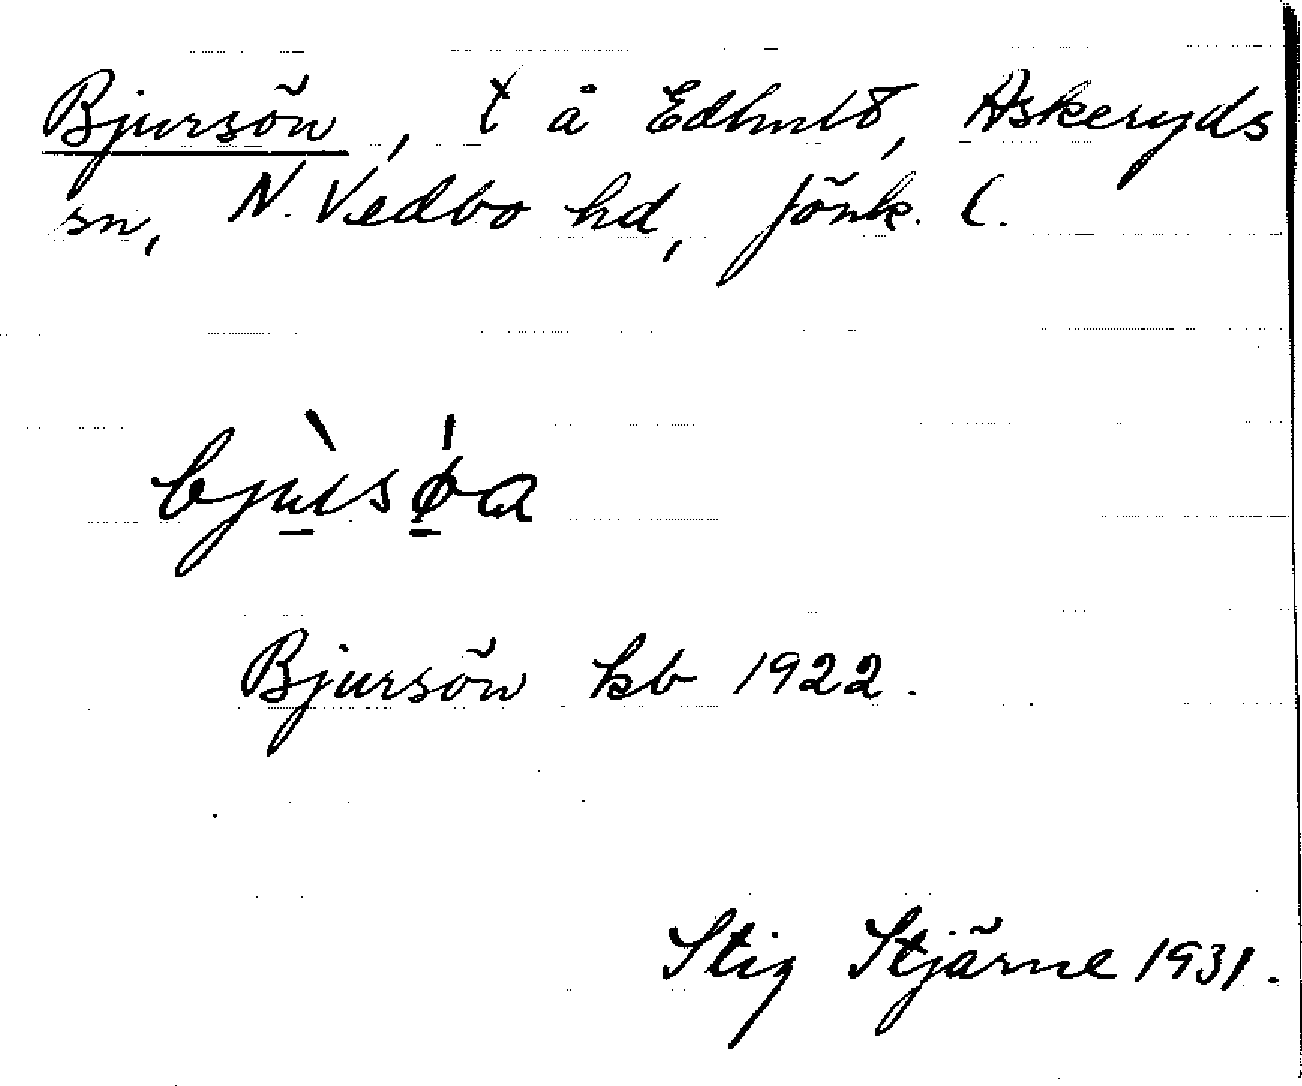 Bjursön, t å Edhult, Askeryds
sn, N. Vedbo hd, Jönk. l.
bjùrsǿa
Bjursön kb 1922.
Stig Stjärne 1931.